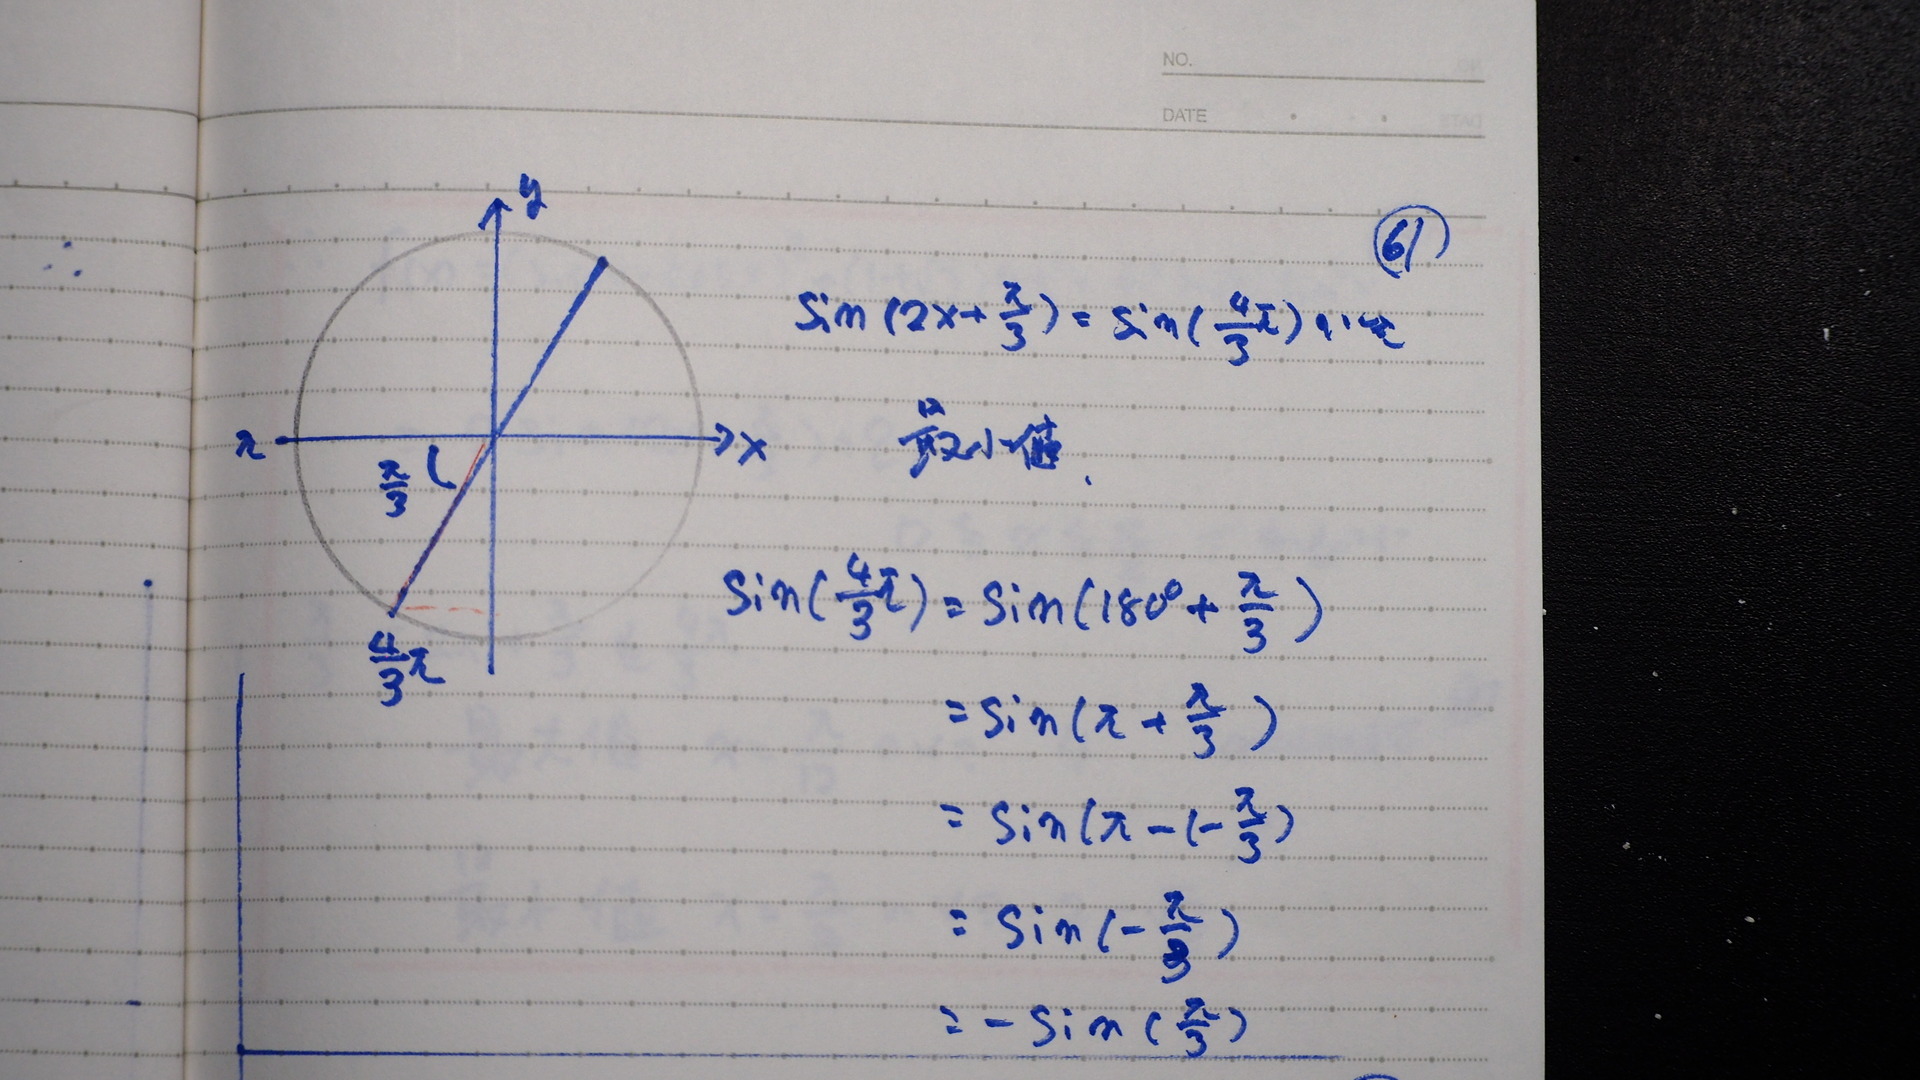 NO.
DATE
61
y
sin(2x+π/3)=sin(4/3π)
π
x
π/3
小值.
4/3π
sin(4/3π)=sin(180°+π/3)
=sin(π+π/3)
=sin(π-(-π/3)
=sin(-π/3)
=-sin(π/3)